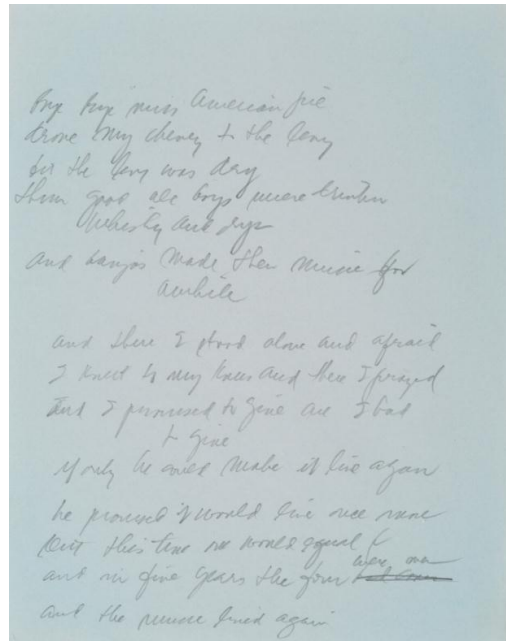 Bye Bye miss American pie
drove my chevy to the levy
but the levy was dry
them good ole boys were drinkin
whiskey and rye
and banjos made their music for
awhile
and there I stood alone and afraid
I knelt to my knees and there I prayed
And I promised to give all I had
to give
if only he could make it live again
he promised it would live once more
But this time one would equal 4
and in five years the four were men
and the music lived again